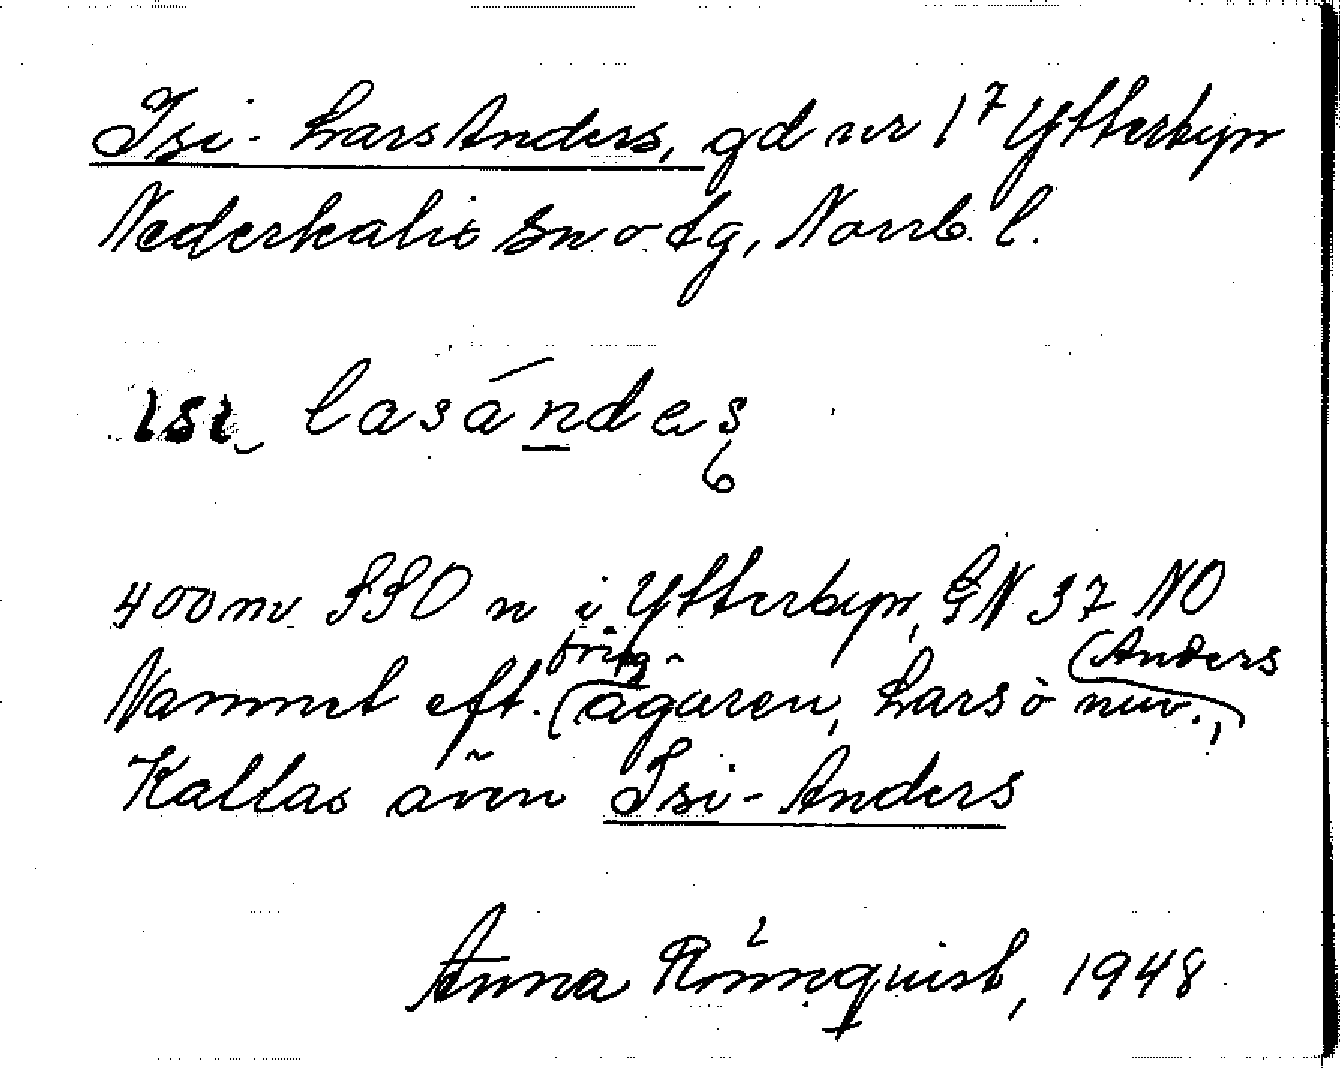 Isi-Lars Anders, gd nr 1⁷ Ytterbyn
Nederkalix sn o tg, Norrb. l.
isi lasándes
400 m SSO n i Ytterbyn, GN 37 NO
Namnet eft. förutv. ägaren, Lars ò nuv. Anders,
Kallas även Isi-Anders
Anna Rönnquist, 1948